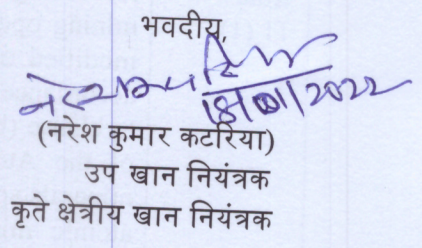 भवदीय,
18/01/2022
(नरेश कुमार कटरिया)
उप खान नियंत्रक
कृते क्षेत्रीय खान नियंत्रक